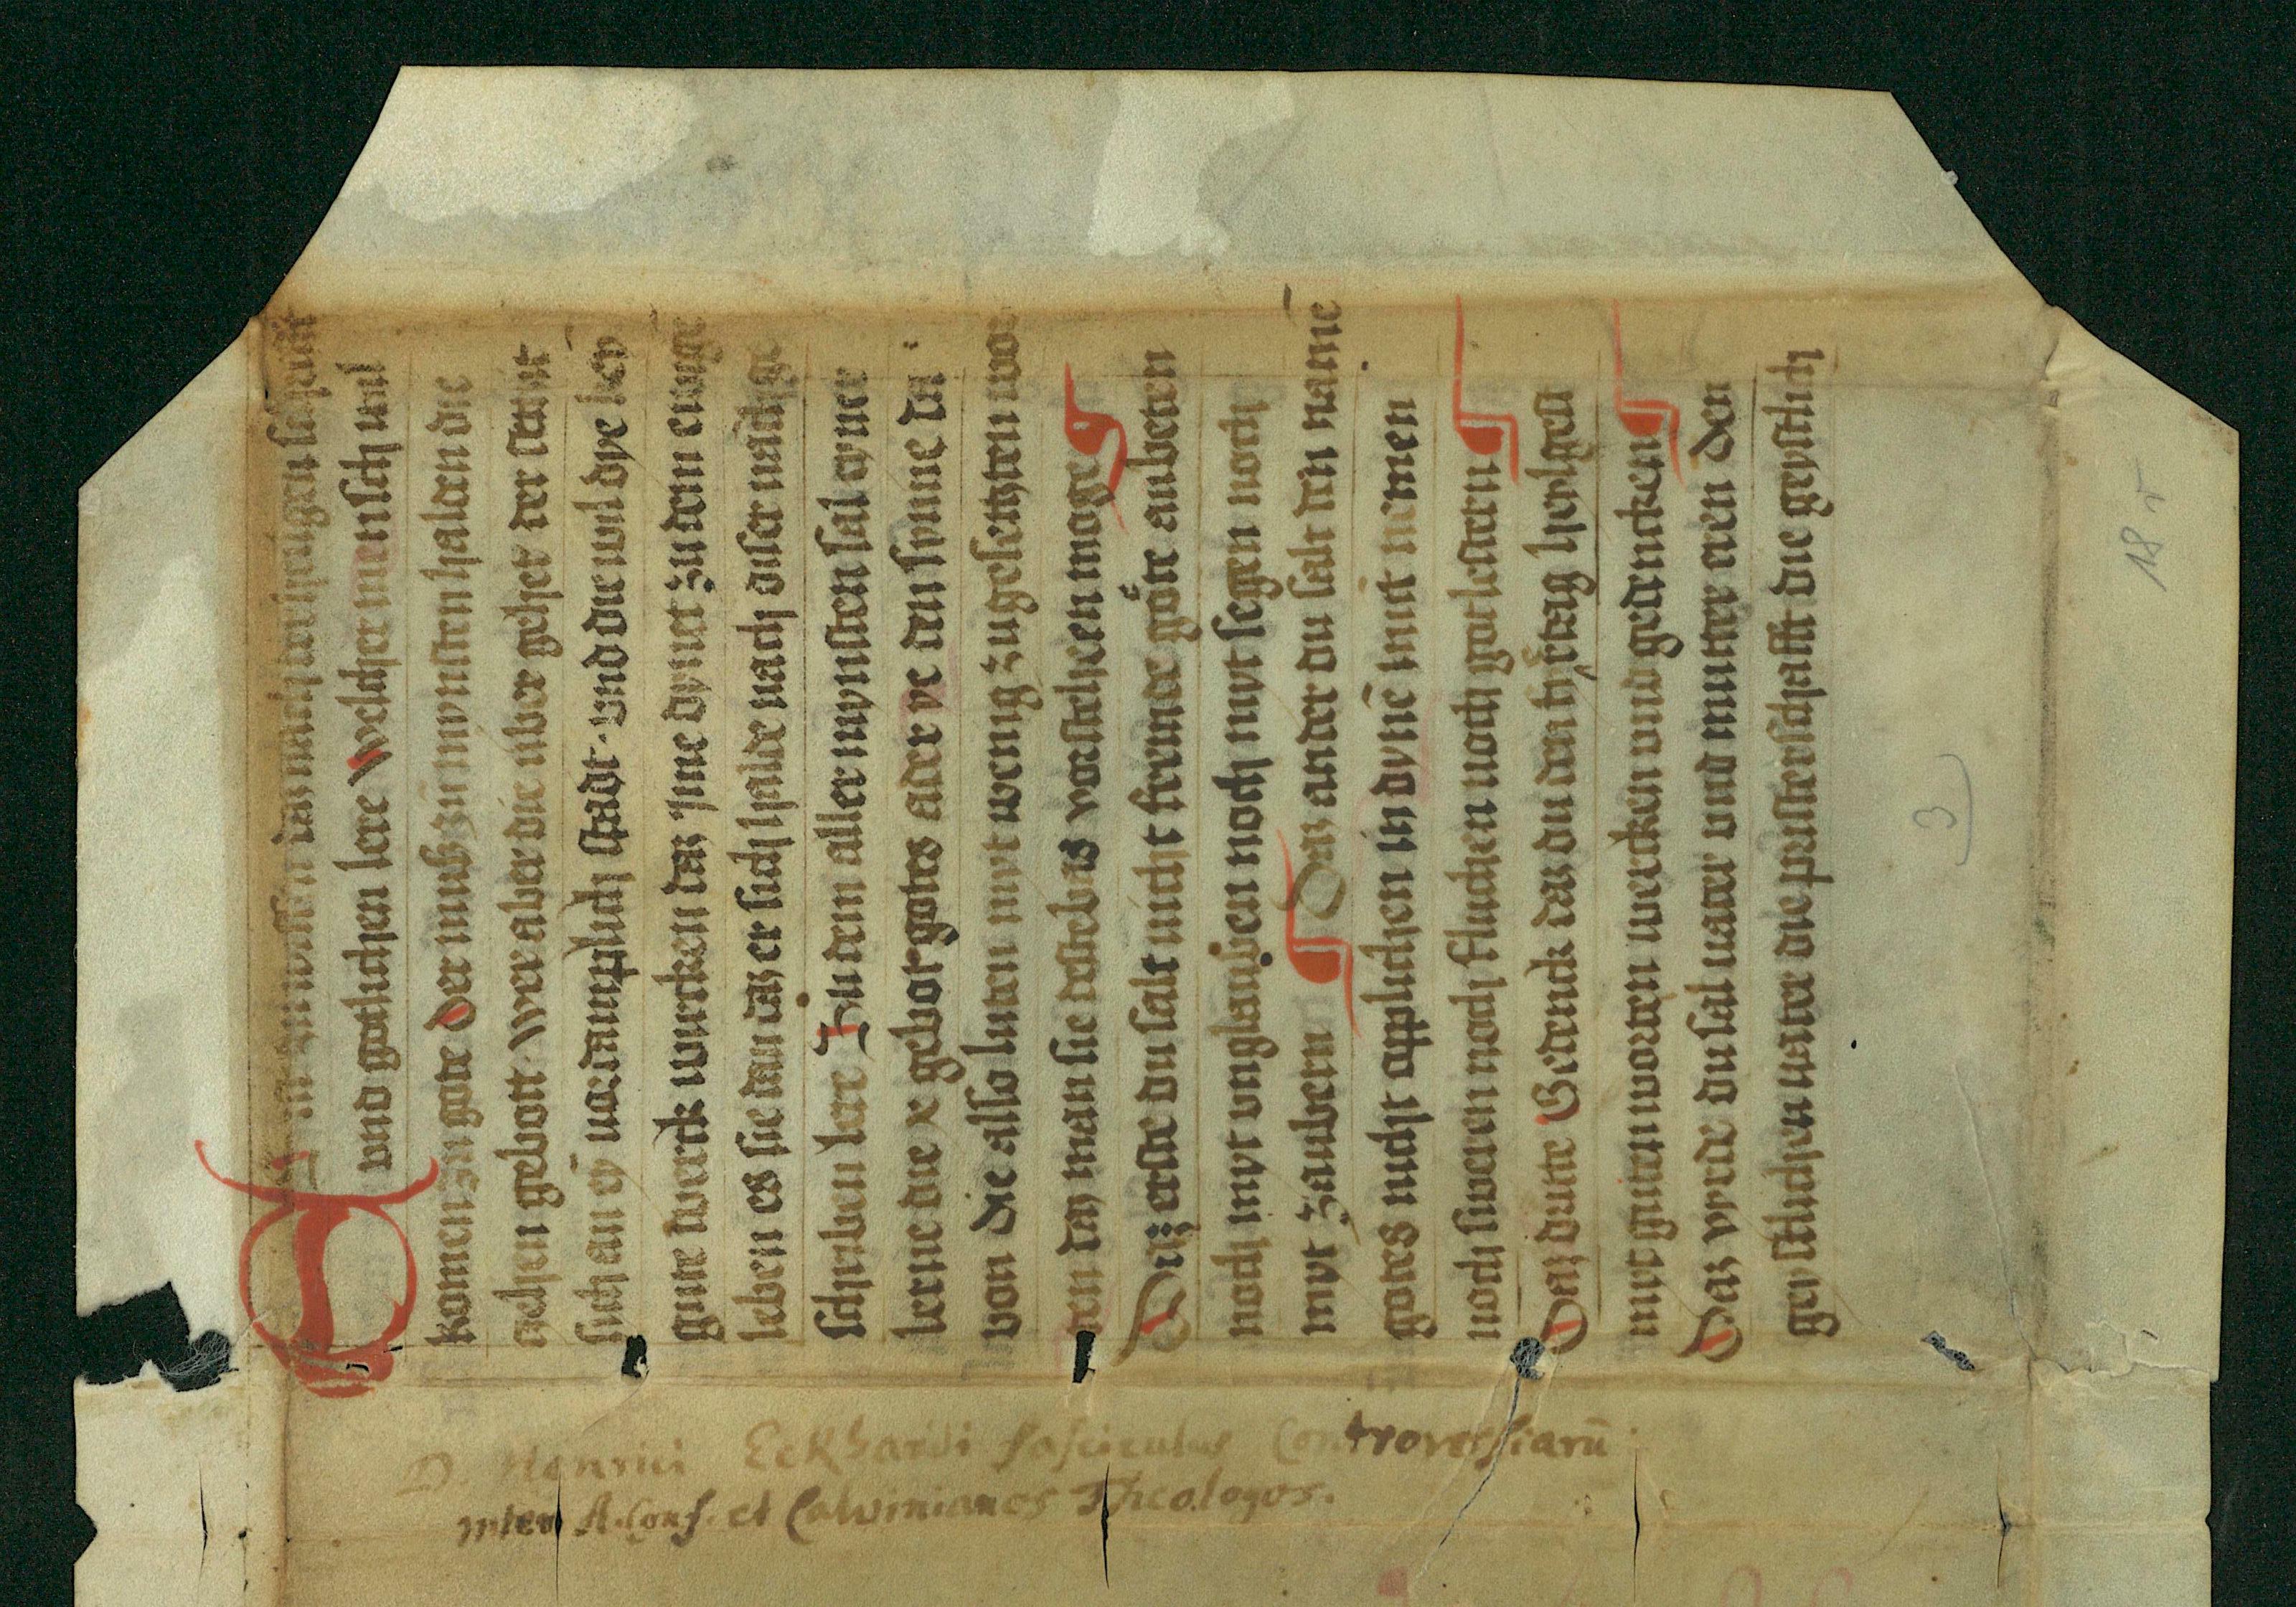 ist zu wissen dar nach der heilgen schrifft
vnd gotlichen lere Welcher mensch wil
komen zu gote Der muß zu mynsten halden die
zehen gebott · Wer aber die uber gehet der setzt
sich an eȳ vordamplich stadt · vnd die wil dye key
gute werck wircken daz yme dynet zu dem ewige
leben es sie dan daz er sich halde nach diser nachge
schriben lere Zu dem aller mynsten sal eyner
lerne die x gebot gotes ader ye den synne da
von Die also luten myt wenig zugesetzten wor
ten daz man sie desteb as vorstehen moge
Daz erste du salt nicht fremde gote anbeten
noch myt vnglauben noch myt segen noch
myt zaubern Daz ander du salt den name
gotes nicht opplichen in dynē munt nemen
noch sweren noch fluchen noch gotlestern
Daz dritte Gedenck daz du den fyrtag heylgest
myt guten worten wercken vnd gedencken
Daz vyrde du sal vater vnd mutter eren den
geystlichen vatre die pristerschafft die geystlich
D. Henrici Eckhardi fasciculus Controversiarū
inter A. Conf. et Calvinianos Theologos.
3)
18 r